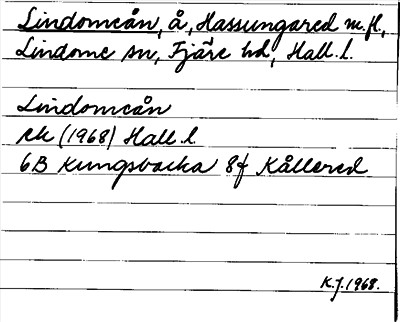 Lindomeån, å, Hassungared m.fl.,
Lindome sn, Fjäre hd, Hall.l.
Lindomeån
ek (1968) Hall.l
6B Kungsbacka 8f Kållered
K.J. 1968.